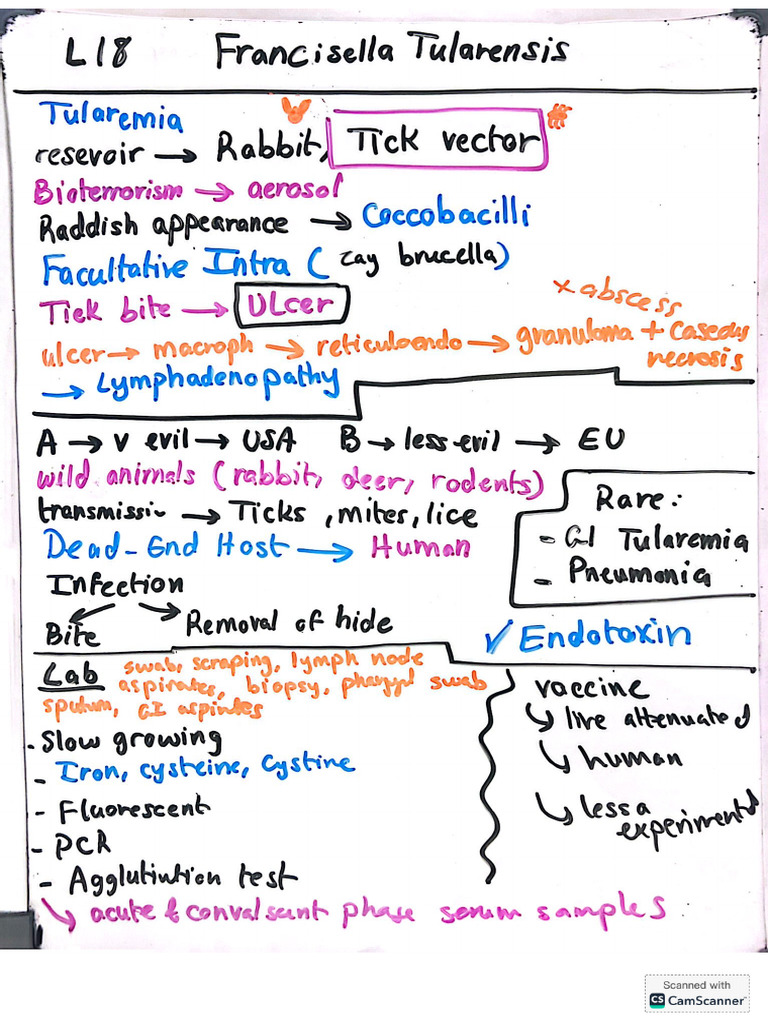 L18 Francisella Tularensis
Tularemia
resevoir → Rabbit, Tick vector
Bioterrorism → aerosol
Raddish appearance → Coccobacilli
Facultative Intra ( zay brucella)
Tick bite → ULcer
x abscess
ulcer → macroph → reticuloendo → granuloma + Caseous
necrosis
→ Lymphadenopathy
A → v evil → USA B → less evil → EU
wild animals (rabbit, deer, rodents)
transmissio → Ticks, mites, lice
Dead-End Host → Human
Rare:
- GI Tularemia
- Pneumonia
Infection
Bite Removal of hide
✓ Endotoxin
Lab swab, scraping, lymph node
aspirates, biopsy, pharyngl swab
sputum, GI aspirates
- Slow growing
- Iron, cysteine, Cystine
- Fluorescent
- PCR
- Agglutintion test
↳ acute & convalseint phase serum samples
vaccine
↳ live attenuated
↳ human
↳ less a
experimental
Scanned with
CS CamScanner